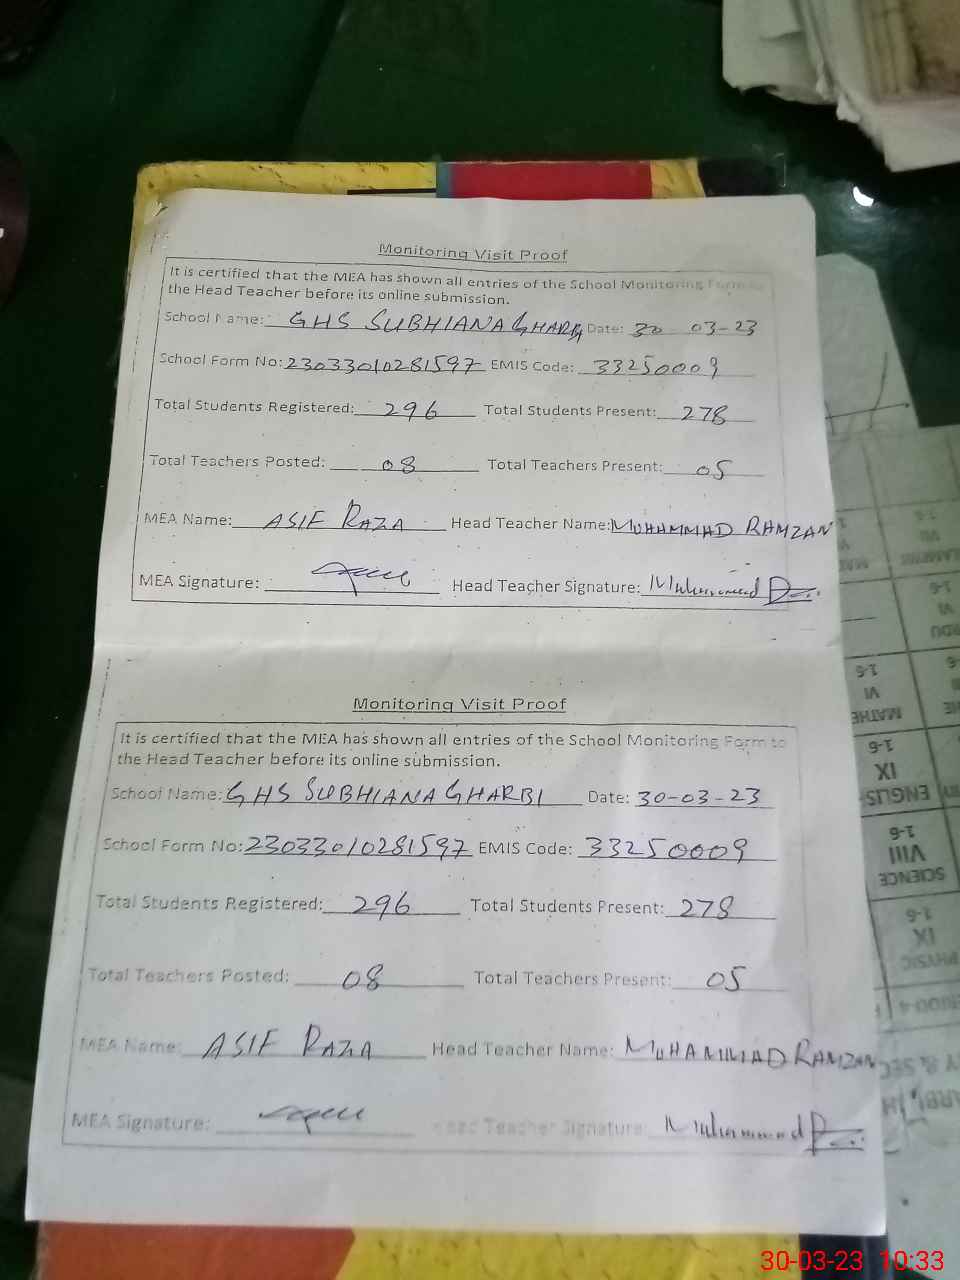 Monitoring Visit Proof
It is certified that the MEA has shown all entries of the School Monitoring Form to
the Head Teacher before its online submission.
School Name: GHS SUBHIANA GHARBI Date: 30 03-23
School Form No: 23033010281597 EMIS Code: 33250009
Total Students Registered: 296 Total Students Present: 278
Total Teachers Posted: 08 Total Teachers Present: 05
MEA Name: ASIF RAZA Head Teacher Name: MUHAMMAD RAMZAN
MEA Signature: Head Teacher Signature: Muhammad
Monitoring Visit Proof
It is certified that the MEA has shown all entries of the School Monitoring Form to
the Head Teacher before its online submission.
School Name: GHS SUBHIANA GHARBI Date: 30-03-23
School Form No: 23033010281597 EMIS Code: 33250009
Total Students Registered: 296 Total Students Present: 278
Total Teachers Posted: 08 Total Teachers Present: 05
MEA Name: ASIF RAZA Head Teacher Name: MUHAMMAD RAMZAN
MEA Signature: Head Teacher Signature: Muhammad
1-6
VII
1-6
VI
1-6
VI
MATHE
1-6
IX
ENGLIS
1-6
VIII
SCIENCE
1-6
IX
PHYSIC
30-03-23 10:33